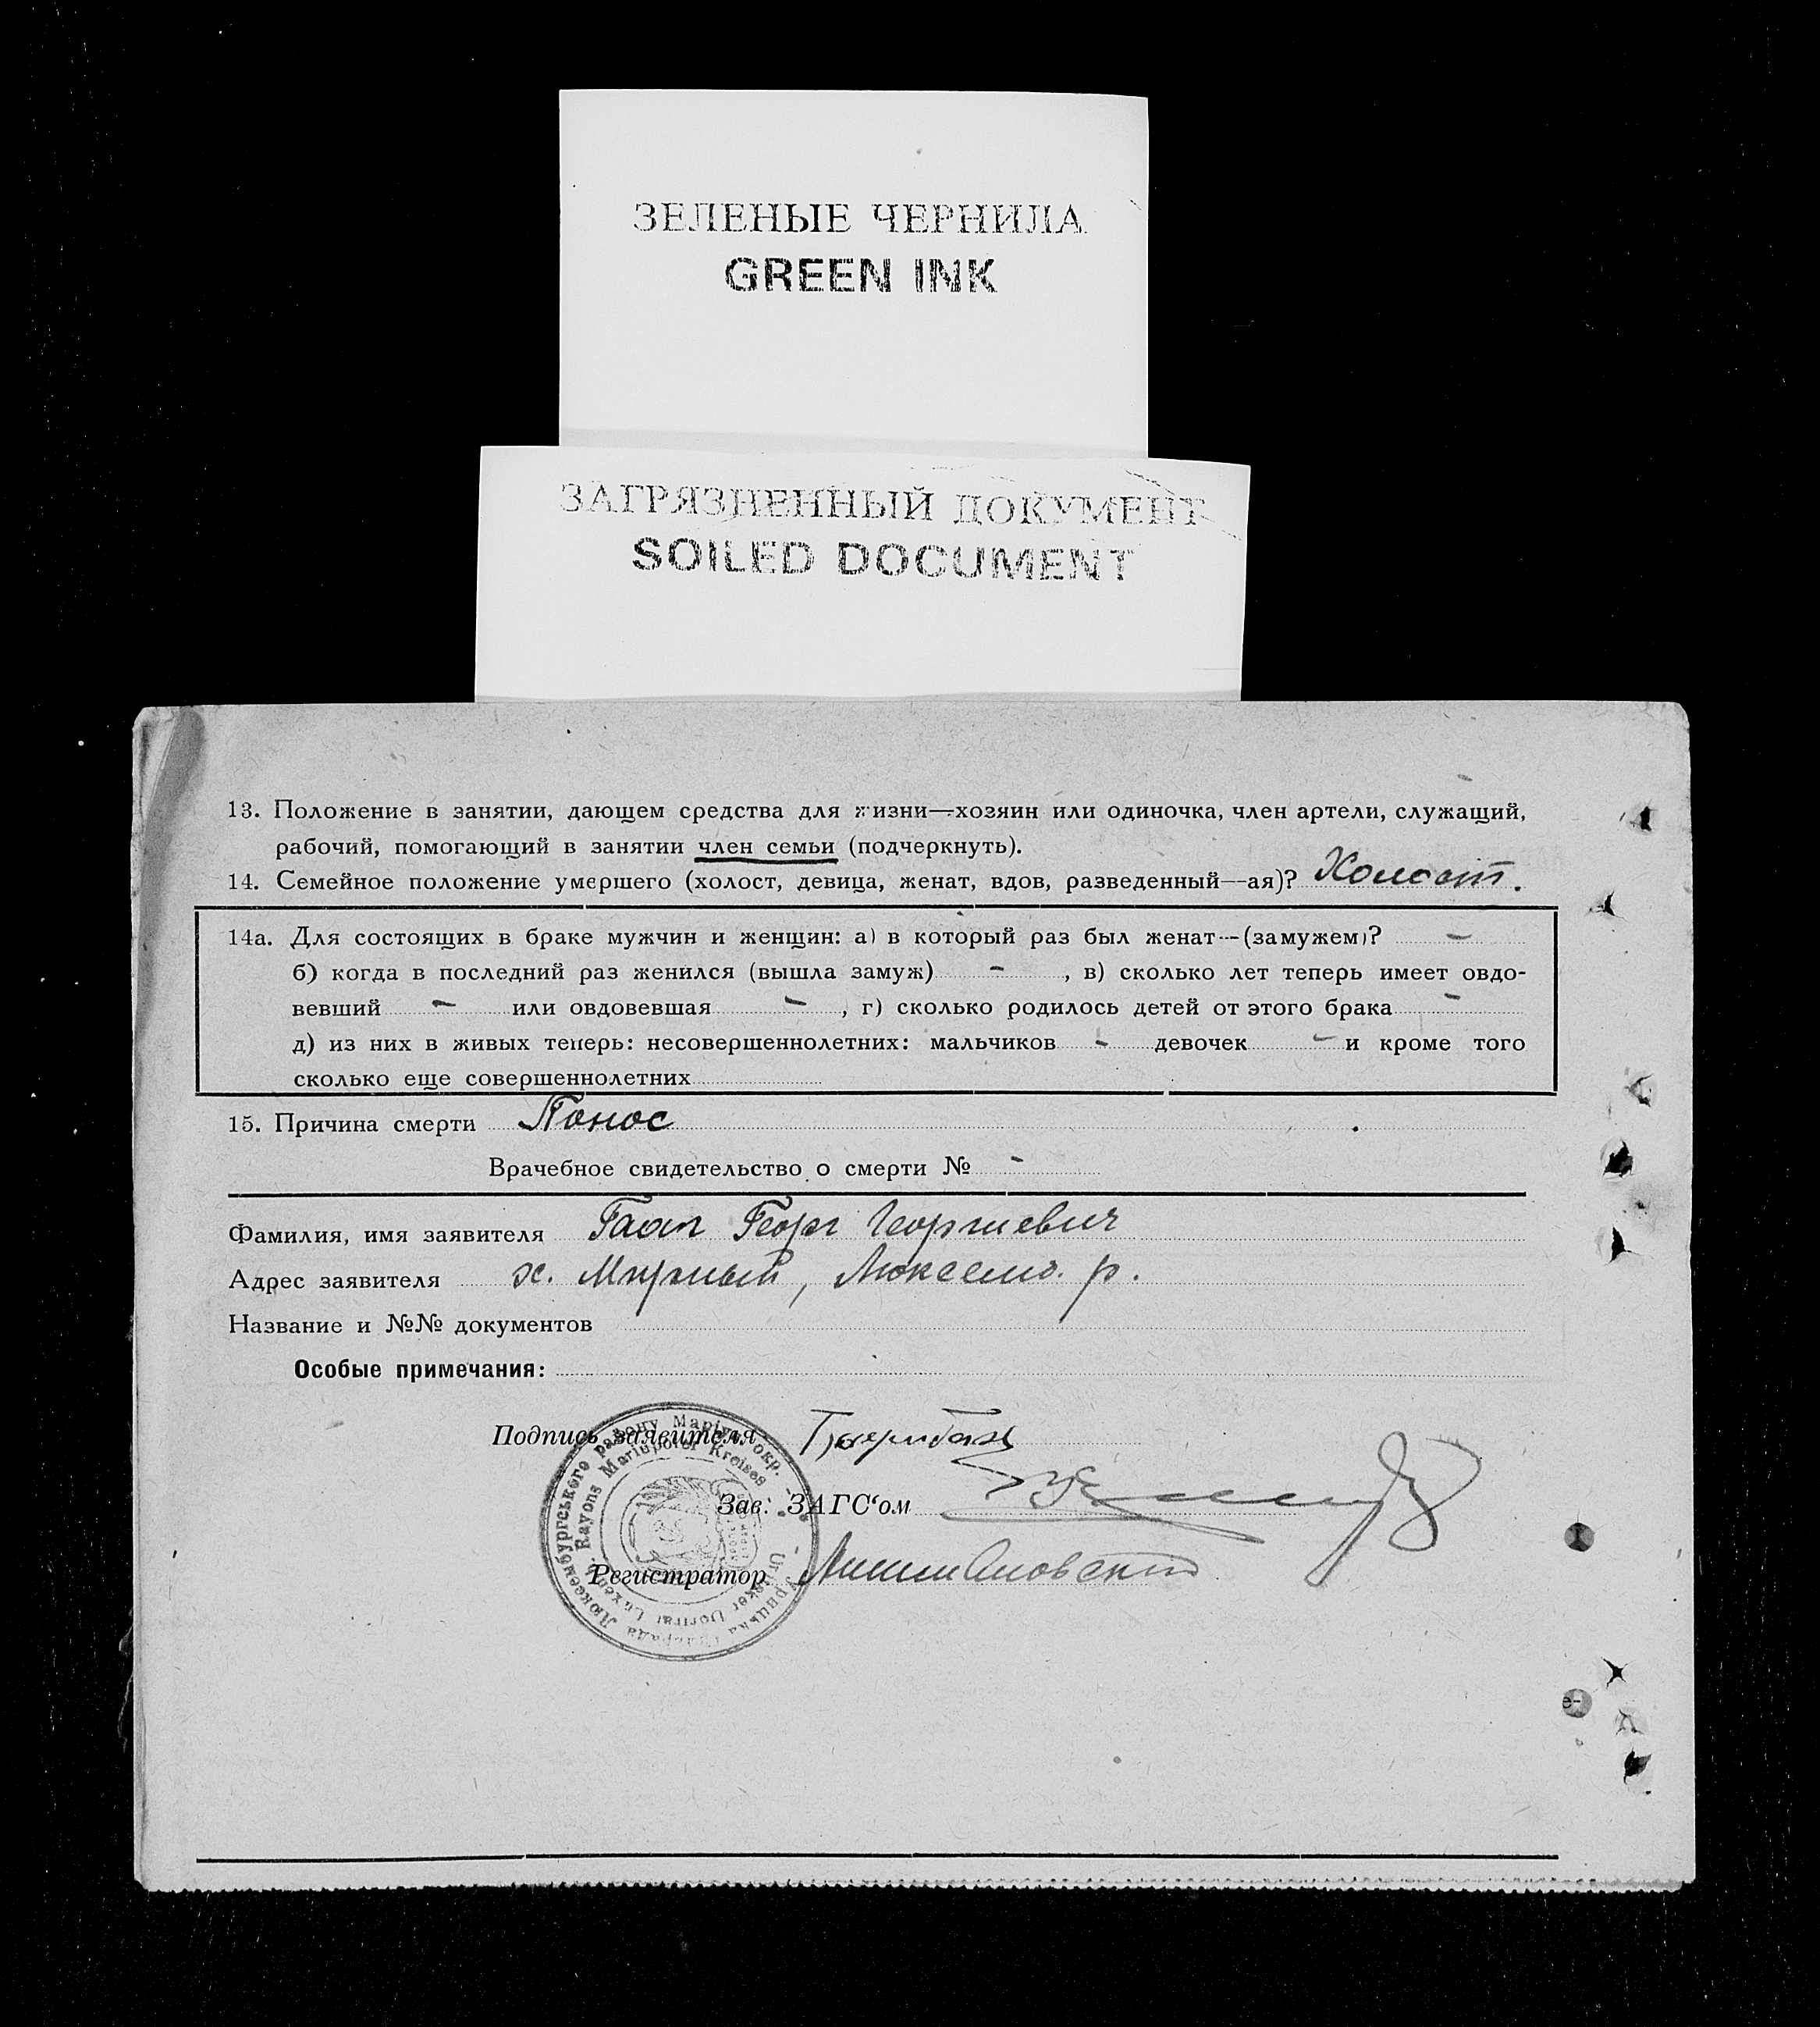 ЗЕЛЕНЫЕ ЧЕРНИЛА
GREEN INK
ЗАГРЯЗНЕННЫЙ ДОКУМЕНТ
SOILED DOCUMENT
13. Положение в занятии, дающем средства для жизни—хозяин или одиночка, член артели, служащий,
рабочий, помогающий в занятии член семьи (подчеркнуть).
14. Семейное положение умершего (холост, девица, женат, вдов, разведенный—ая)? Холост.
14а. Для состоящих в браке мужчин и женщин: а) в который раз был женат—(замужем)? -
б) когда в последний раз женился (вышла замуж) - , в) сколько лет теперь имеет овдо-
вевший - или овдовевшая - , г) сколько родилось детей от этого брака -
д) из них в живых теперь: несовершеннолетних: мальчиков - девочек - и кроме того
сколько еще совершеннолетних
15. Причина смерти Понос
Врачебное свидетельство о смерти № -
Фамилия, имя заявителя Георг Георгиевич
Адрес заявителя х. Мирный, р.
Название и №№ документов
Особые примечания:
Подпись заявителя
Зав. ЗАГС‘ом
Регистратор
Люксембургського району Маріуп. окр.
Rayons Mariupoler Kreises